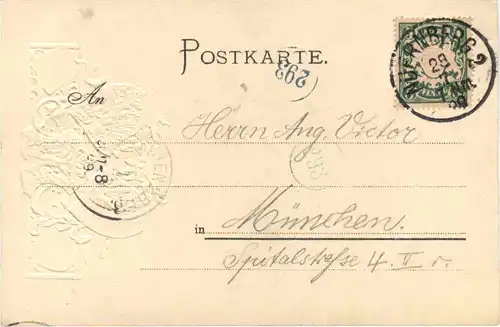 POSTKARTE.
NUERNBERG 2
29
293
An
Herrn Aug. Victor
7-8
99
in München.
Spitalstraße 4. II r.